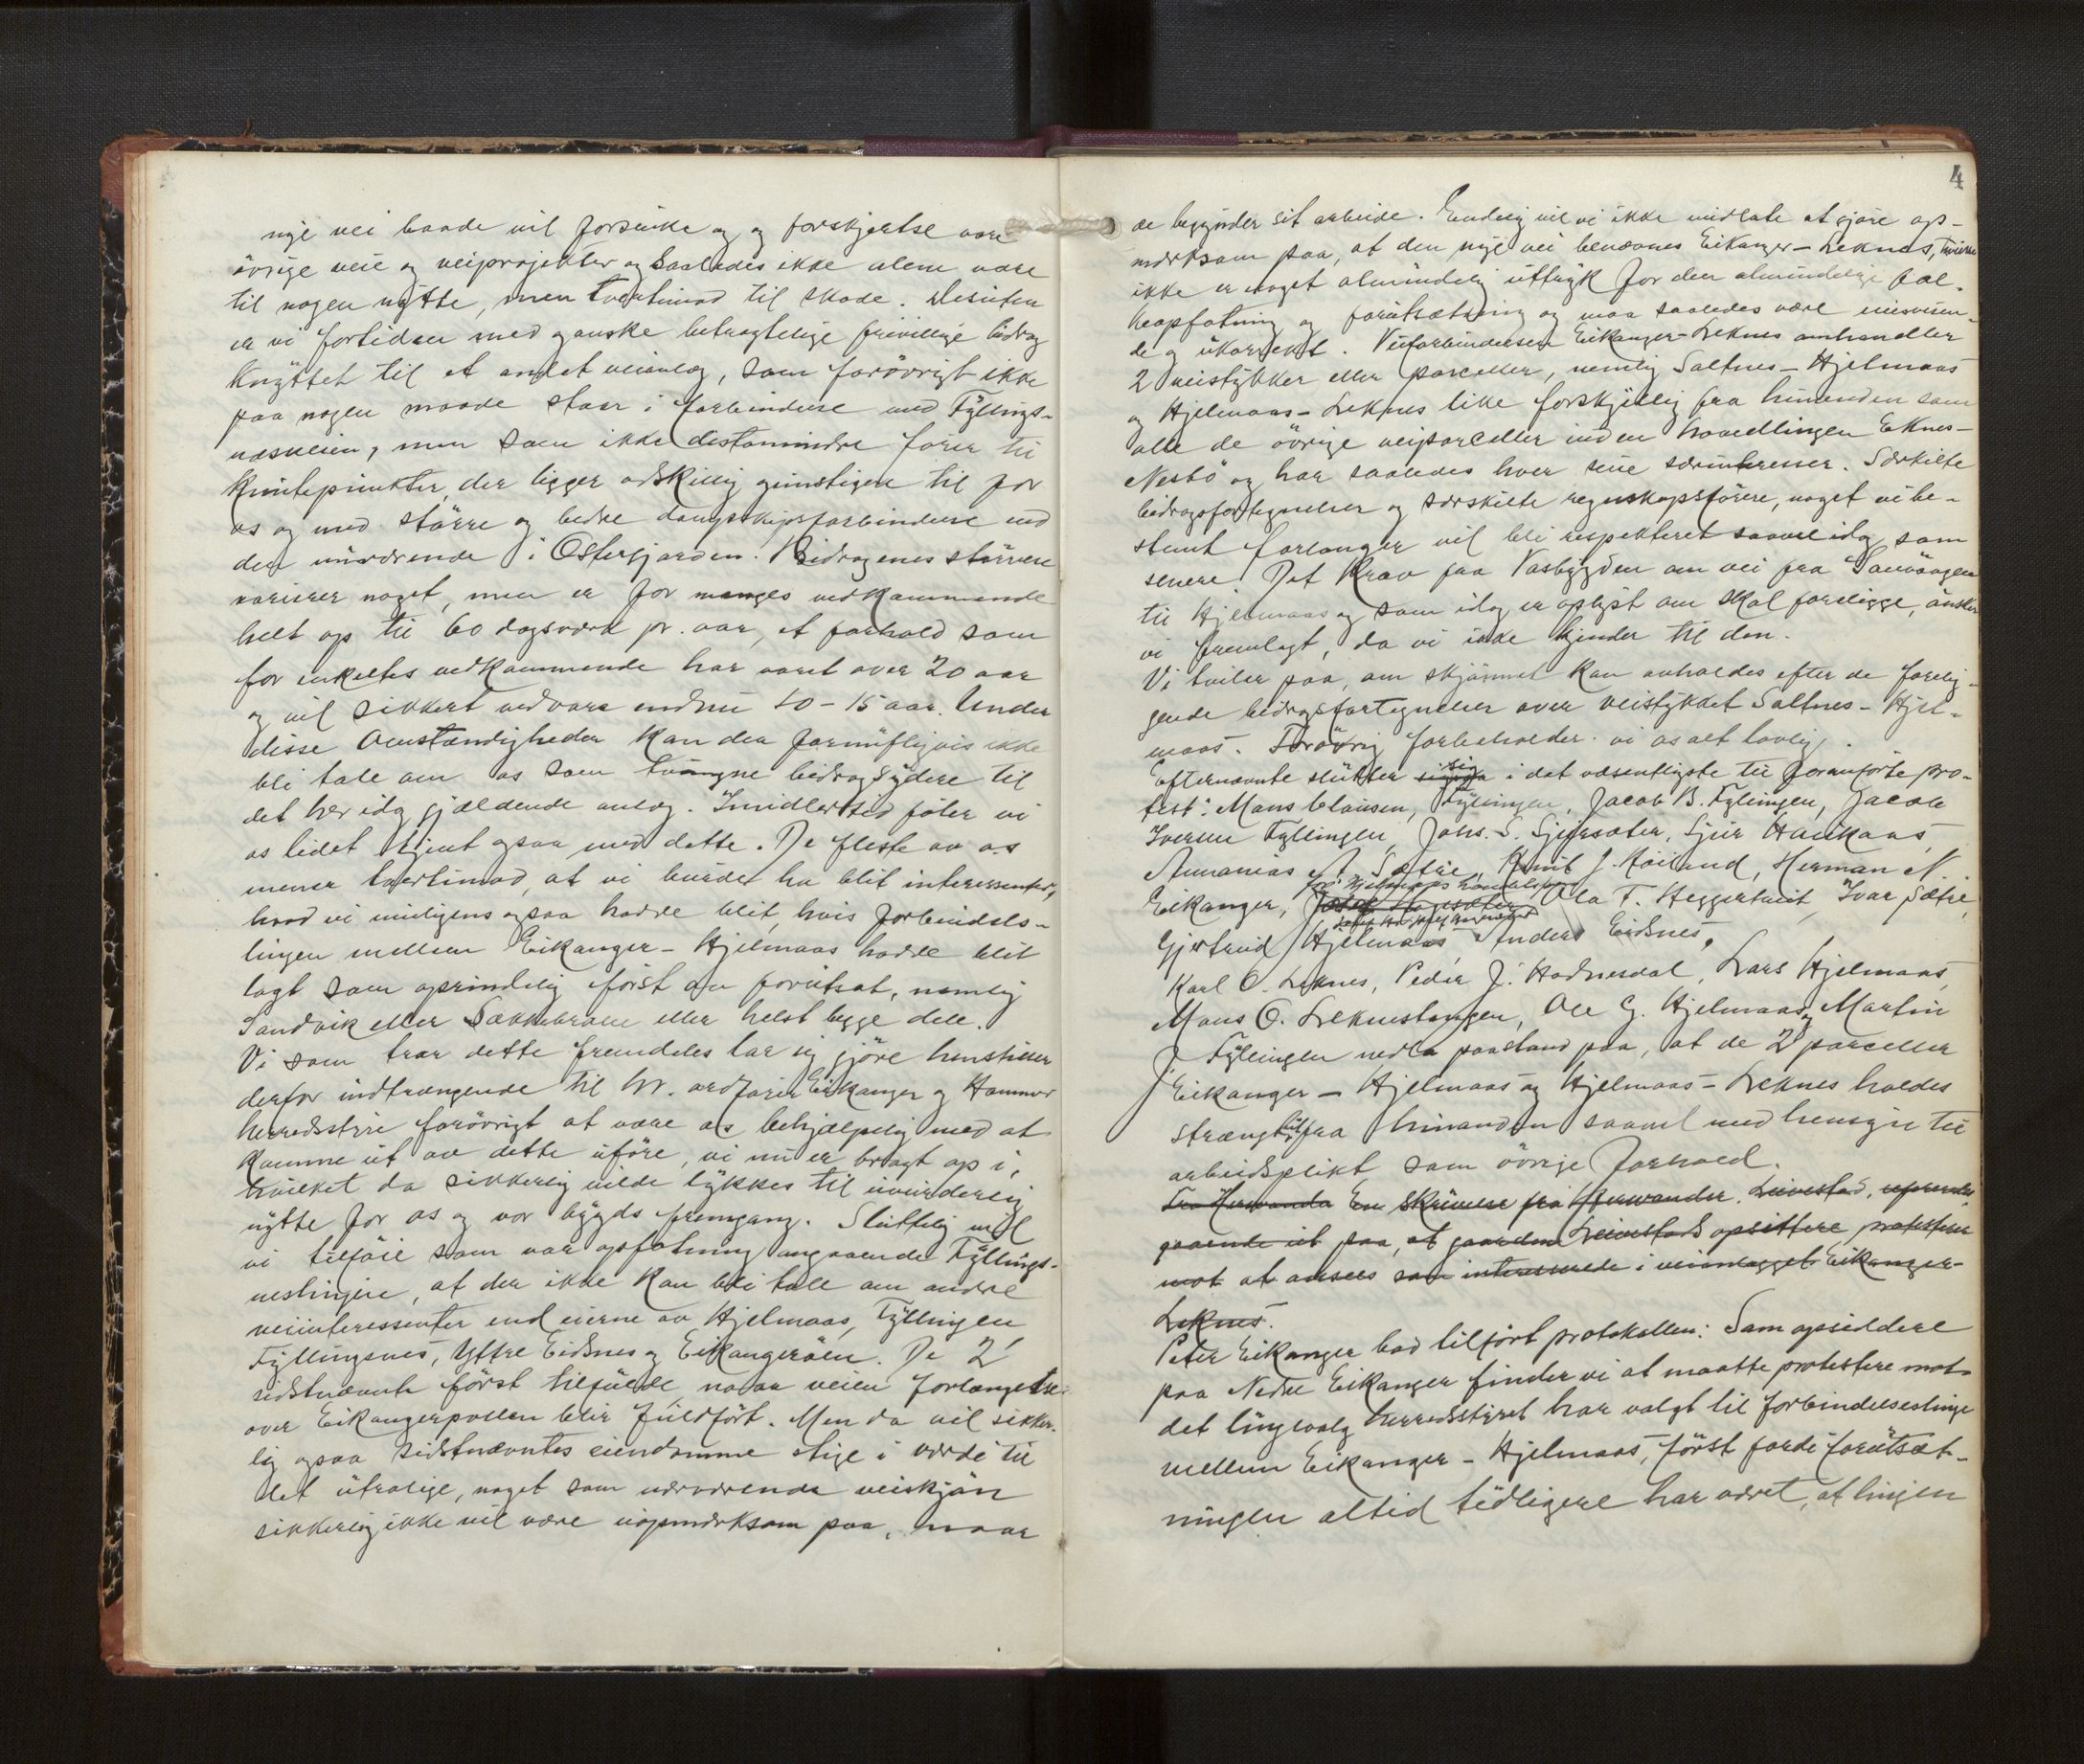 nye vei baade vil forsinke og og forskjertse vore
övrige veie og veiprojekter og saaledes ikke alene være
til nogen nytte, men tvertimod til skade. Desuten
er vi fortiden med ganske betragtelige frivillige bidrag
knyttet til et andet veianlæg, som forövrigt ikke
paa nogen maade staar i forbindelse med Fyllings-
nesveien, men som ikke destomindre förer til
knutepunkter, der ligger adskillig gunstigere til for
os og med större og bedre dampskipsforbindelse end
den nuværende i Osterfjorden. Bidragenes störrelse
varierer noget, men er for manges vedkommende
helt op til 60 dagsværk pr. aar, et forhold som
for enkeltes vedkommende har varet over 20 aar
og vil sikkert vedvare endnu 10-15 aar. Under
disse omstændigheder kan der fornuftigvis ikke
bli tale om os som tvungne bidragsydere til
det her idag gjældende anlæg. Imidlertid föler vi
os lidet tjent ogsaa med dette. De fleste av os
mener tvertimod, at vi burde ha blit interessenter,
hvad vi muligens ogsaa hadde blit, hvis forbindels-
lingen mellem Eikanger - Hjelmaas hadde blit
lagt som oprindelig först av forutsat, nemlig
Sandvik eller Sækkebraae eller helst begge dele.
Vi som tror dette fremdeles lar sig gjöre henstiller
derfor indtrængende til hr. ordförer Eikanger og Hammer
herredsstyre forövrigt at være os behjælpelig med at
komme ut av dette uföre, vi nu er bragt op i,
hvilket da sikkerlig vilde lykkes til uvurderlig
nytte for os og vor bygds fremgang. Sluttelig vil
vi tilföie som vor opfatning angaaende Fyllings-
neslinjen, at der ikke kan bli tale om andre
veiinteressenter end eierne av Hjelmaas, Fyllingen
Fyllingsnes, Yttre Eidsnes og Eikangeröen. De 2
sidstnævnte först tilfulde naar veien forlængelse
over Eikangerpollen blir fuldfört. Men da vil sikker-
lig ogsaa sidstnævntes eiendomme stige i værdi til
det utrolige, noget som nærværende veiskjön
sikkerlig ikke vil være uopmerksom paa, naar
4
de begynder sit arbeide. Endelig vil vi ikke undlate at gjöre op-
merksom paa, at den nye vei benævnes Eikanger-Leknes, hvilke
ikke er noget almindelig uttryk for den almindelige fol-
keopfatning og forutsætning og maa saaledes være misvisen-
de og ukorrekt. Veiforbindelsen Eikanger-Leknes omhandler
2 veistykker eller parceller, nemlig Saltnes-Hjelmaas
og Hjelmaas-Leknes like forskjellig fra hinanden som
alle de övrige veiparceller inden hovedlinjen Eknes-
Nesbö og har saaledes hver sine særinteresser. Særkilte
bidragsfortegnelser og særskilte regnskapsförere, noget vi be-
stemt forlanger vil bli respekteret saavel idag som
senere. Det krav fra Vasbygden om vei fra Sauvaagen
til Hjelmaas og som idag er oplyst om skal foreligge, önsker
vi fremlagt, da vi ikke kjender til den.
Vi tviler paa, om skjönnet kan avholdes efter de forelig-
gende bidragsfortegnelser over veistykket Saltnes-Hjel-
maas. Forövrig forbeholder vi os alt lovlig.
Efternævnte slutter sig i det væsentligste til foranförte pro-
test: Mons Clausen, Fyllingen, Jacob B. Fyllingen, Jacob
Iversen Fyllingen, Johs. S. Sjursæter, Sjur Haukaas
Ananias A. Sætre, Knut J. Röiland, Herman N.
for Hjelmaas handelslag
Eikanger, Ola T. Heggertveit, Ivar Sætre,
Gjertrud Hjelmaas, Anders Eidsnes,
Karl O. Leknes, Peder J. Hodnesdal, Lars Hjelmaas,
Mons O. Leknestangen, Ole G. Hjelmaas, og Martin
J. Fyllingen nedla paastand paa, at de 2 parceller
Eikanger - Hjelmaas og Hjelmaas - Leknes holdes
strængt ut fra hinanden saavel med hensyn til
arbeidsplikt som övrige forhold.
Fra Herwanda En skrivelse fra Herwander Leivestad,
gaaende ut paa, at gaarden Leivestads opsittere protesterer
mot at ansees som interesserede i veianlægget Eikanger-
Leknes.
Peter Eikanger bad tilfört protokollen: Som opsiddere
paa Nedre Eikanger finder vi at maatte protestere mot
det linjevalg herredsstyret har valgt til forbindelseslinje
mellem Eikanger - Hjelmaas, först fordi forutsæt-
ningen altid tidligere har været, at linjen